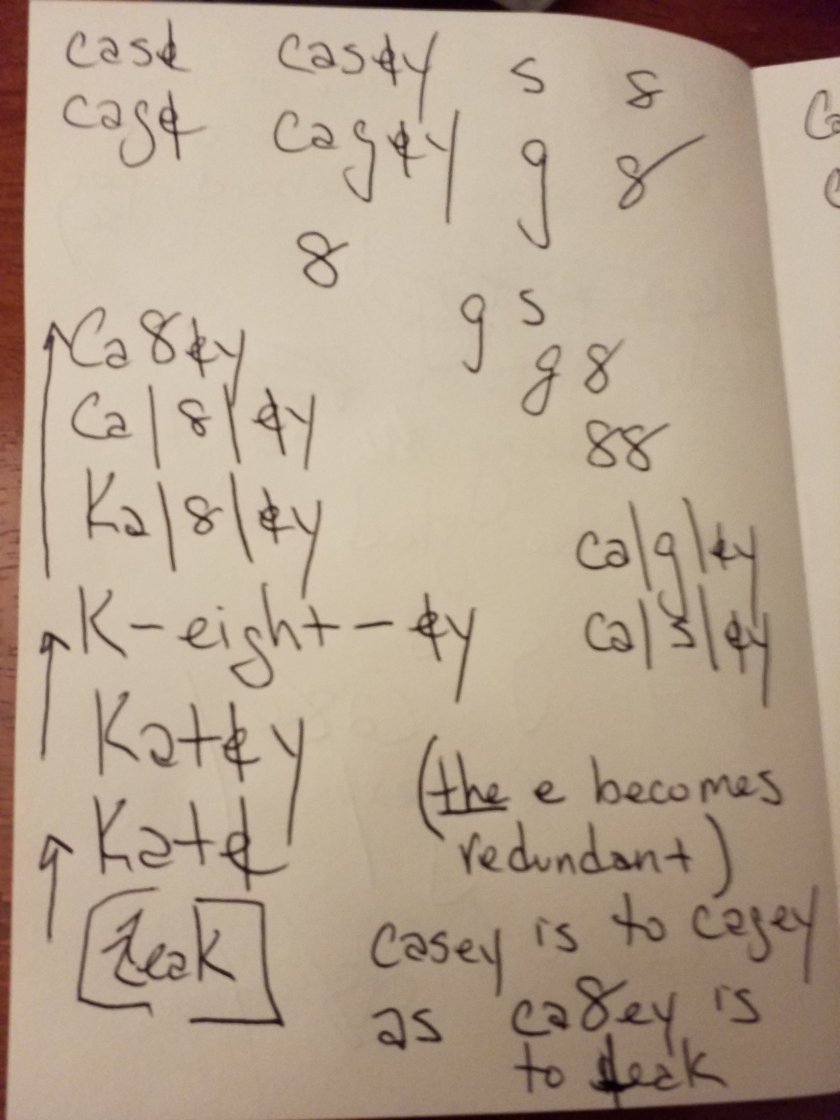 case casey s 8
cage cagey g 8
8
g s
Ca8ey
g 8
Ca|8|ey
88
Ka|8|ey
ca|g|ey
K-eight-ey
ca|s|ey
Katey
(the e becomes
Kate
redundant)
teak
casey is to cagey
as ca8ey is
to teak
Ca
c